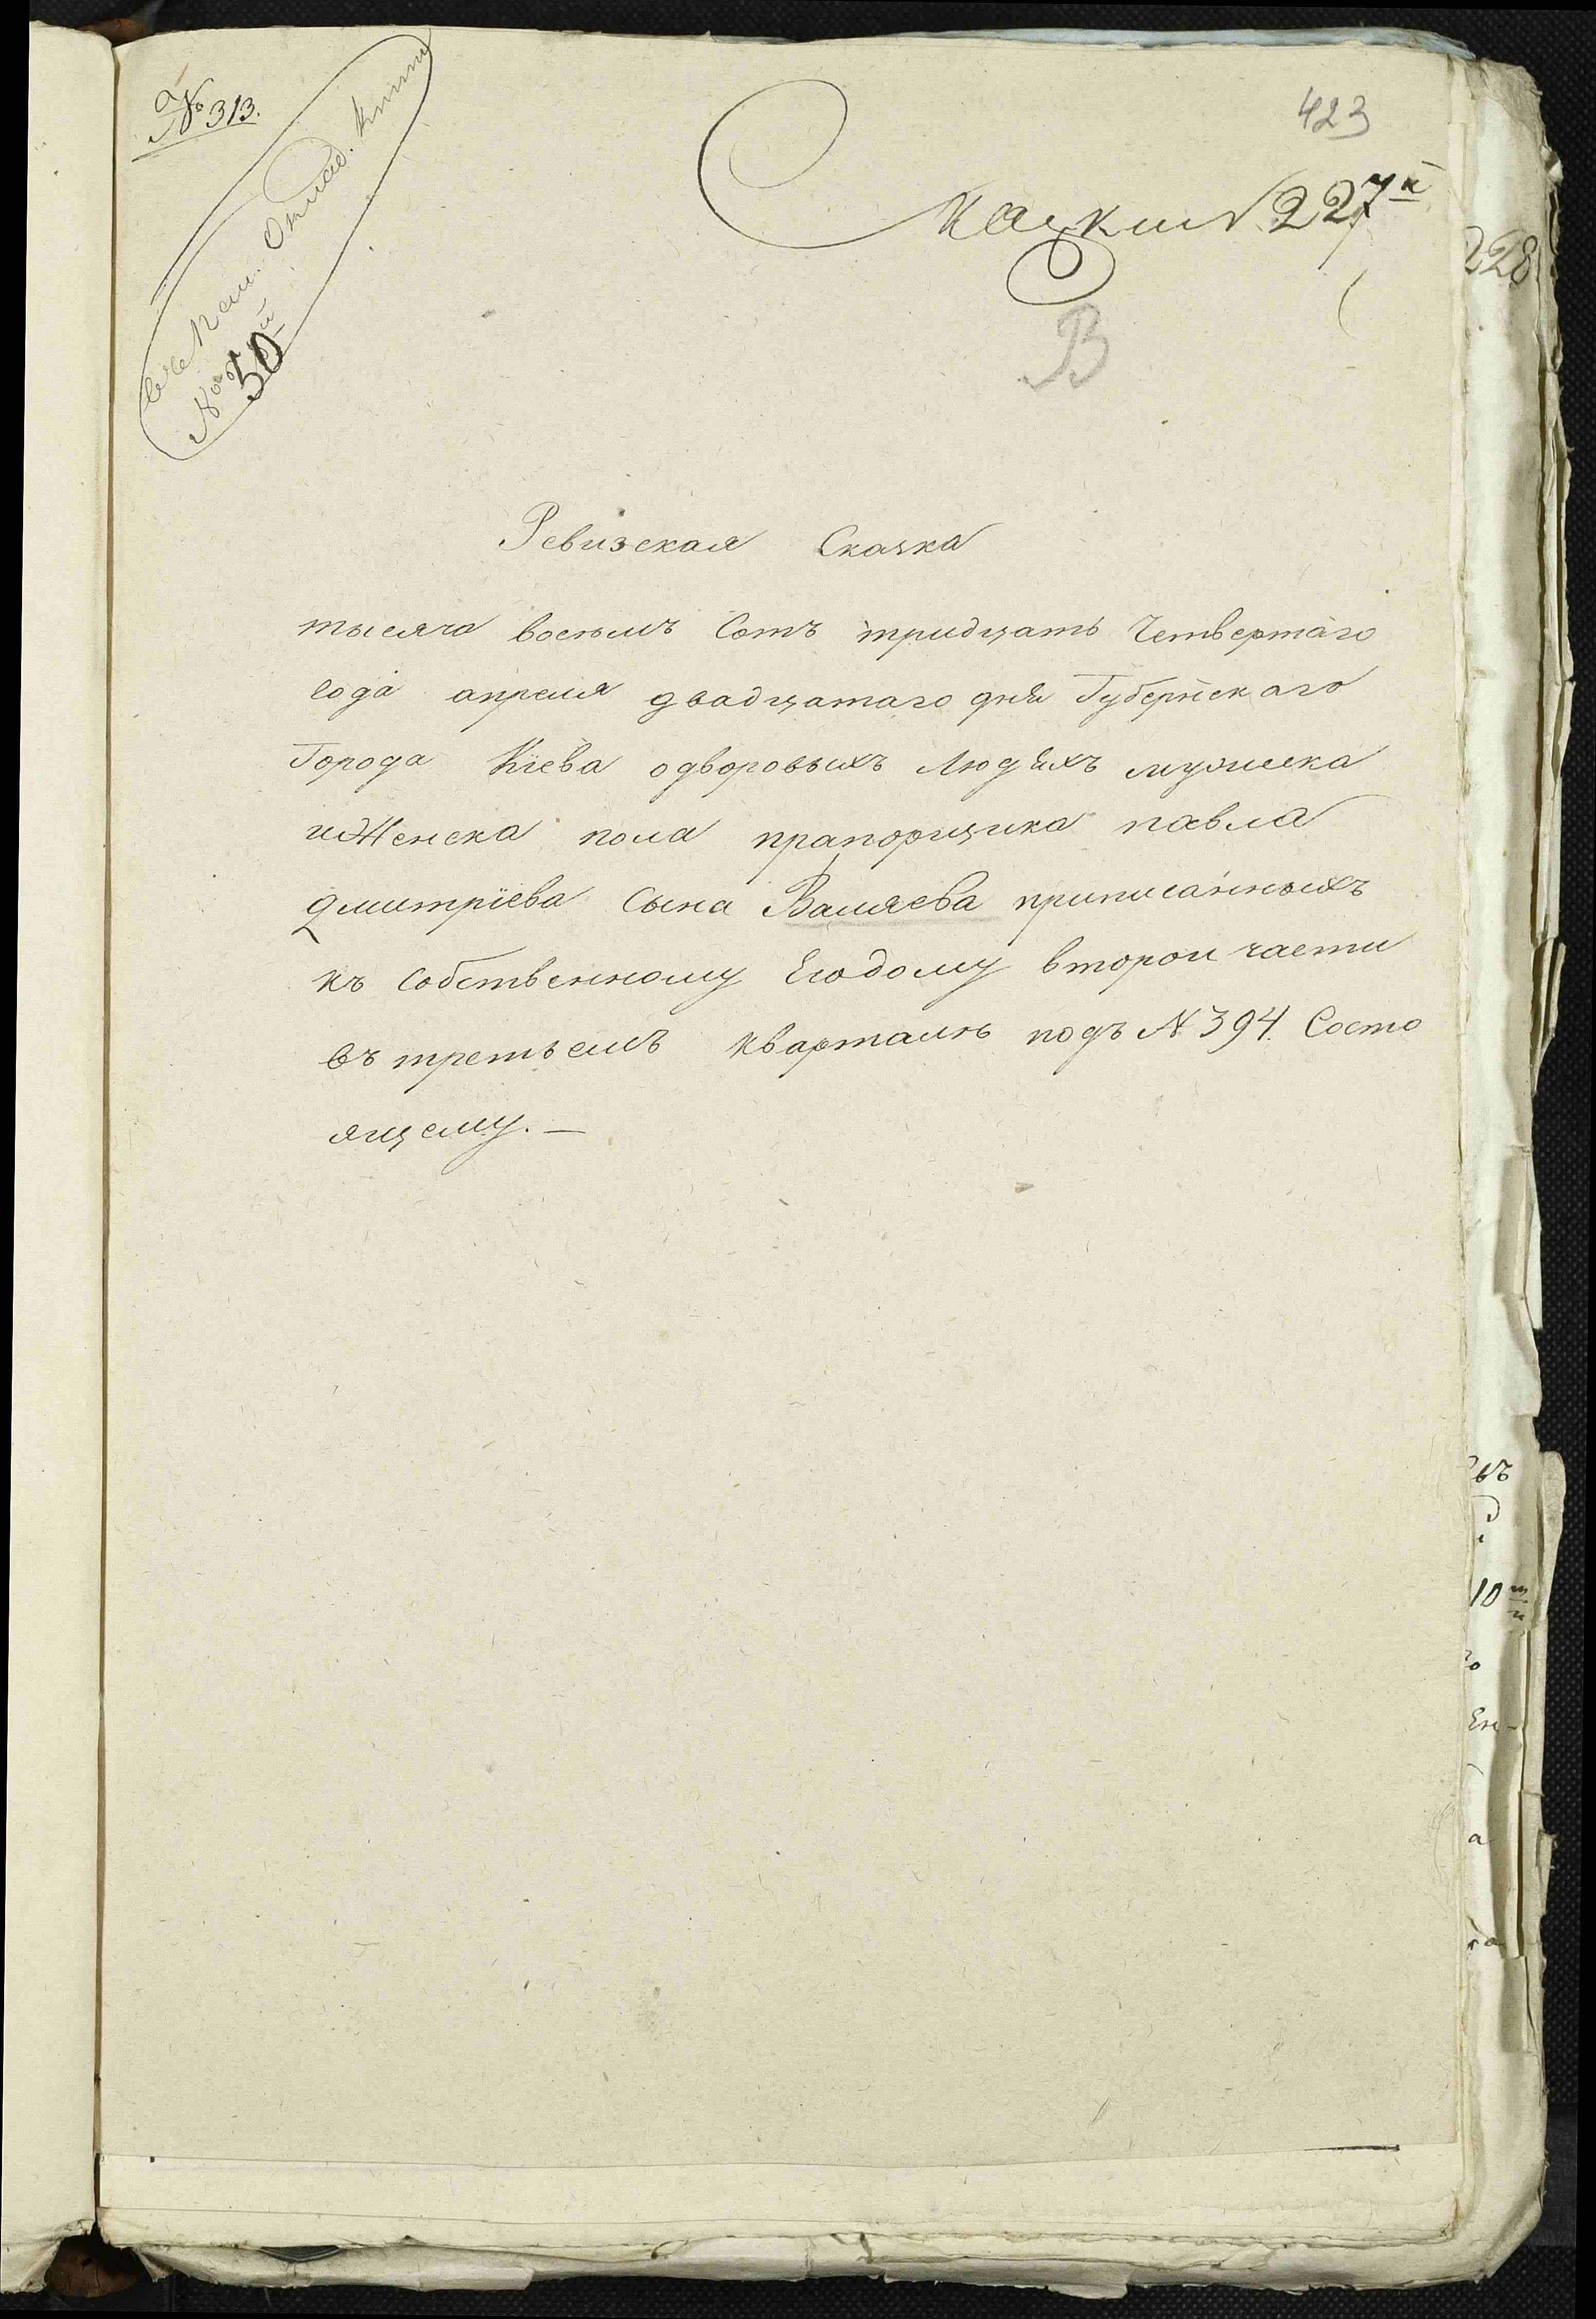 № 313.
Оклад. книги
№ 50й
423
Сказки 227я
228
В
Ревизская Сказка
тысяча восемъ Сотъ тридцать Четвертаго
года апреля двадцатаго дня Губернскаго
Города Кіева одворовыхъ Людяхъ мужеска
иЖенска пола прапорщика павла
дмитріева Сына Валяева приписанныхъ
къ Собственному Егодому второи части
въ третьемъ кварталѣ подъ № 394. Состо
ящему. —